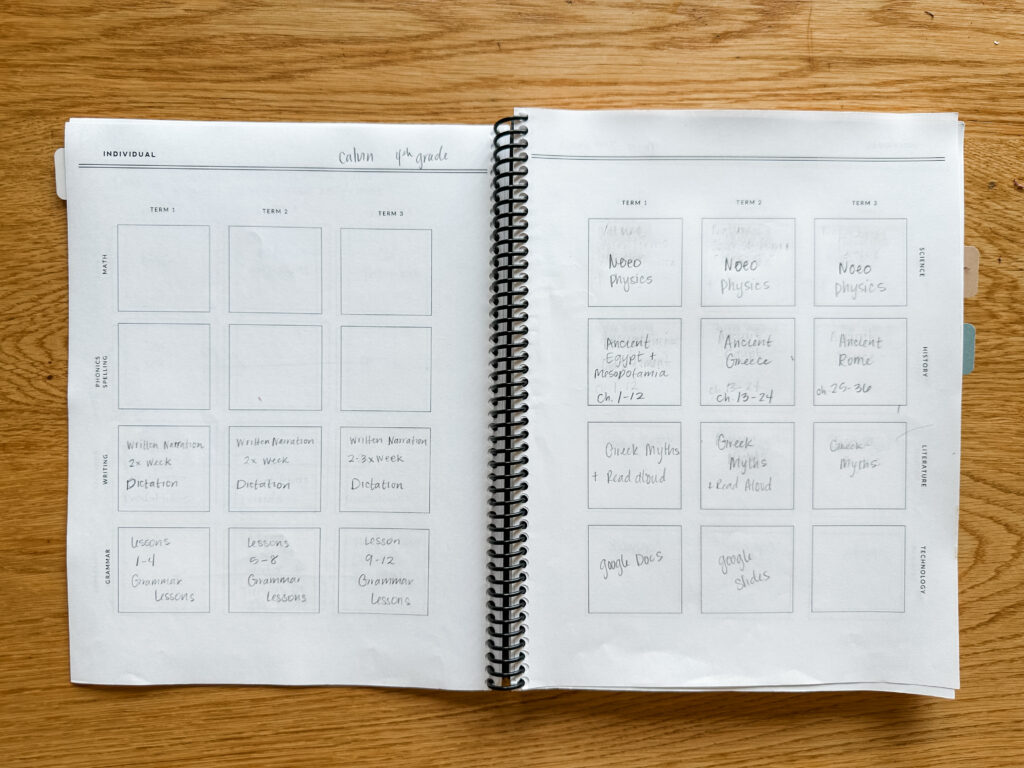 INDIVIDUAL
Calvin 4th grade
TERM 1
TERM 2
TERM 3
MATH
PHONICS
SPELLING
WRITING
Written Narration
2x week
Dictation
Written Narration
2x week
Dictation
Written Narration
2-3x week
Dictation
GRAMMAR
Lessons
1-4
Grammar
Lessons
Lessons
5-8
Grammar
Lessons
Lesson
9-12
Grammar
Lessons
TERM 1
TERM 2
TERM 3
Noeo
Physics
Noeo
Physics
Noeo
physics
SCIENCE
Ancient
Egypt +
Mesopotamia
Ch. 1-12
Ancient
Greece
Ch 13-24
Ancient
Rome
ch 25-36
HISTORY
Greek Myths
+ Read aloud
Greek
Myths
+ Read Aloud
Greek
Myths
LITERATURE
google Docs
google
slides
TECHNOLOGY